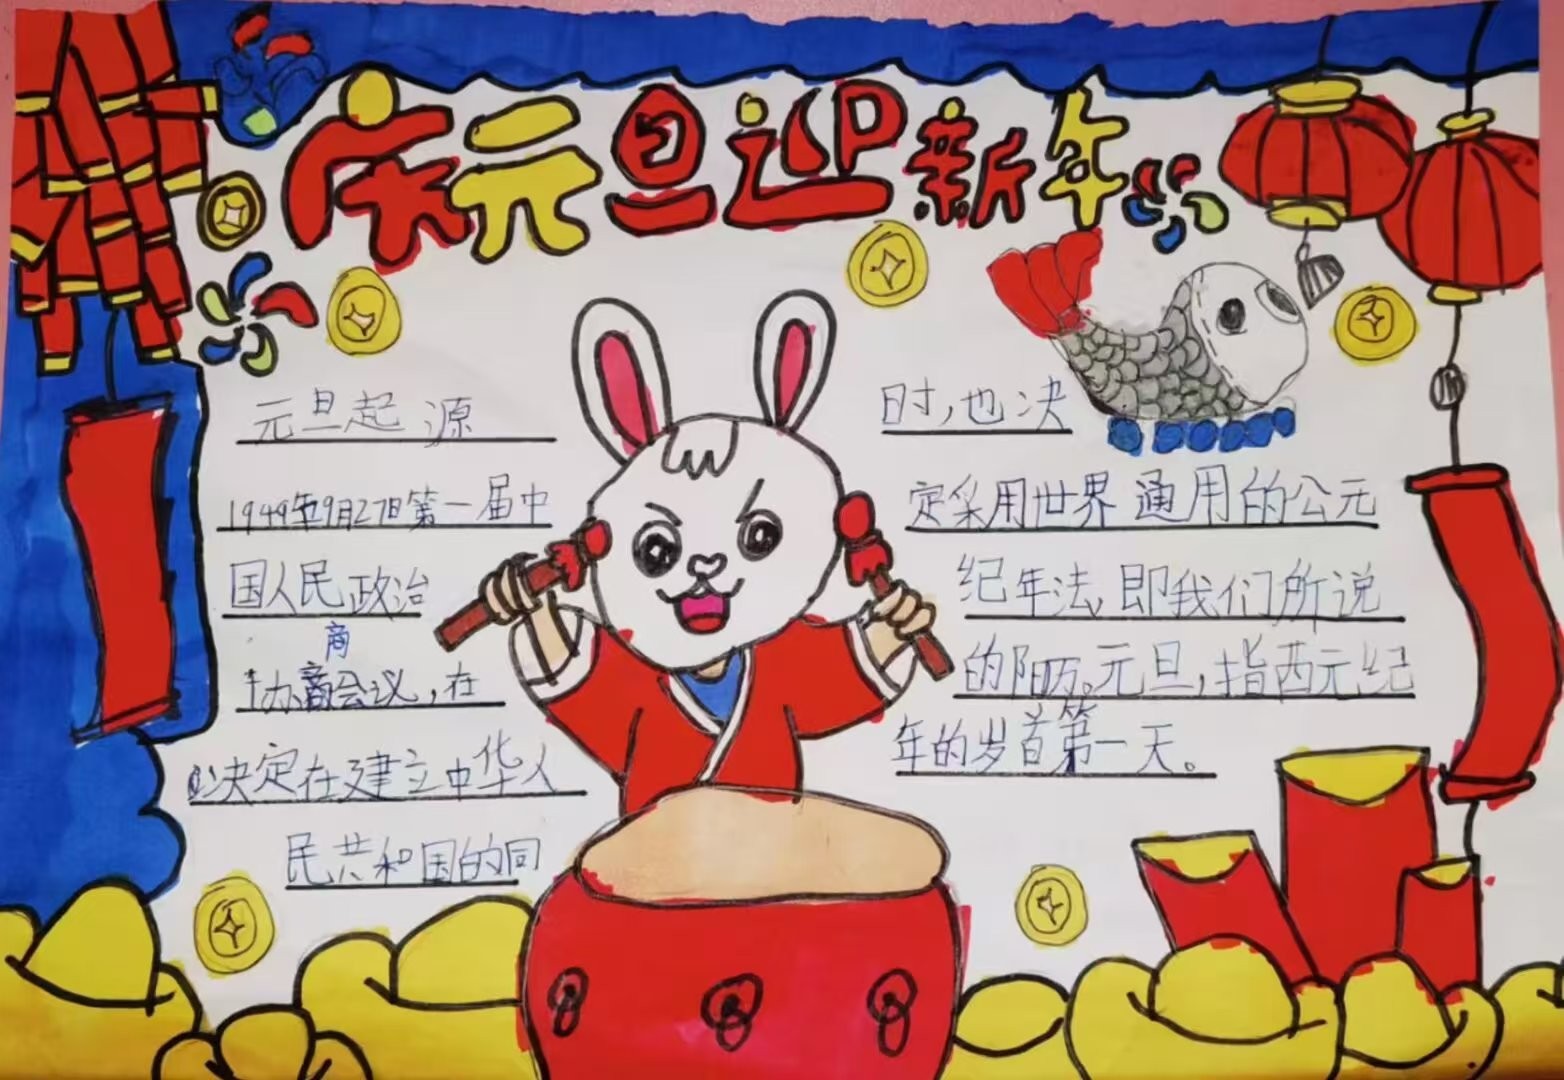 庆元旦迎新年
元旦起源
1949年9月27日第一届中
国人民政治
商
协商会议，在
决定在建立中华人
民共和国的同
时，也决
定采用世界通用的公元
纪年法、即我们所说
的阳历。元旦，指西元纪
第
年的岁首第一天。